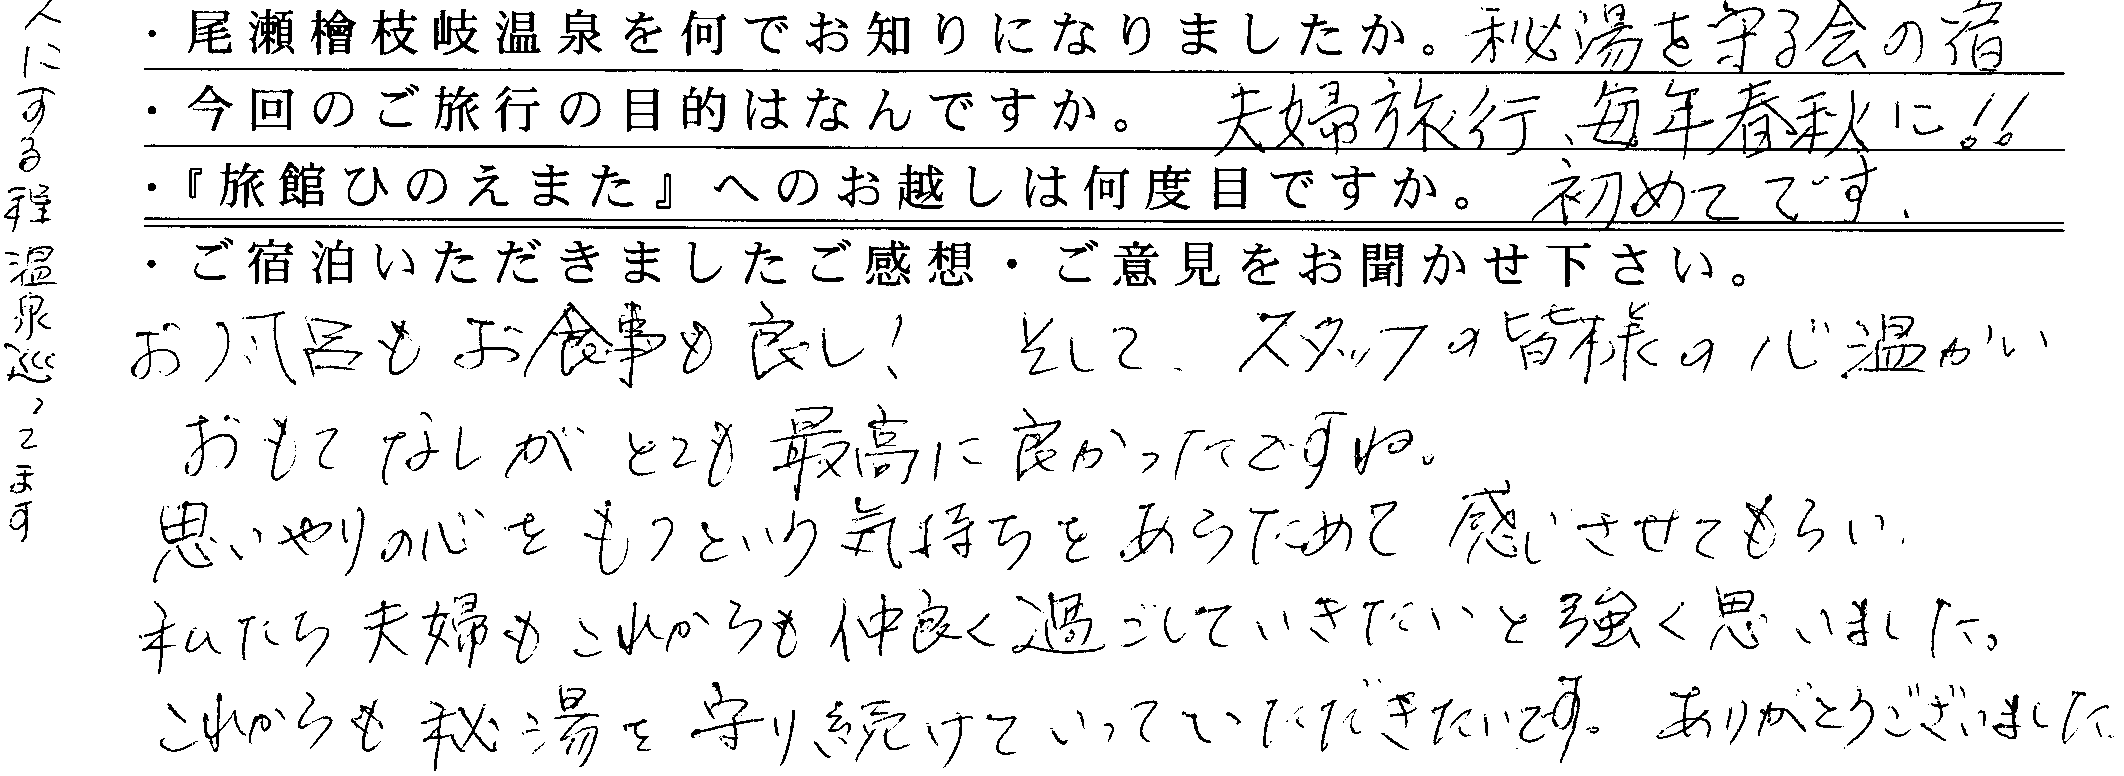 ・尾瀬檜枝岐温泉を何でお知りになりましたか。秘湯を守る会の宿
・今回のご旅行の目的はなんですか。 夫婦旅行、毎年春秋に!!
・『旅館ひのえまた』へのお越しは何度目ですか。初めてです.
・ご宿泊いただきましたご感想・ご意見をお聞かせ下さい。
お風呂もお食事も良し! そして、スタッフの皆様の心温かい
おもてなしがとても最高に良かったですね。
思いやりの心をもつという気持ちをあらためて感じさせてもらい、
私たち夫婦もこれからも仲良く過ごしていきたいと強く思いました。
これからも秘湯を守り続けていっていただきたいです。ありがとうございました
にする程温泉巡ってます